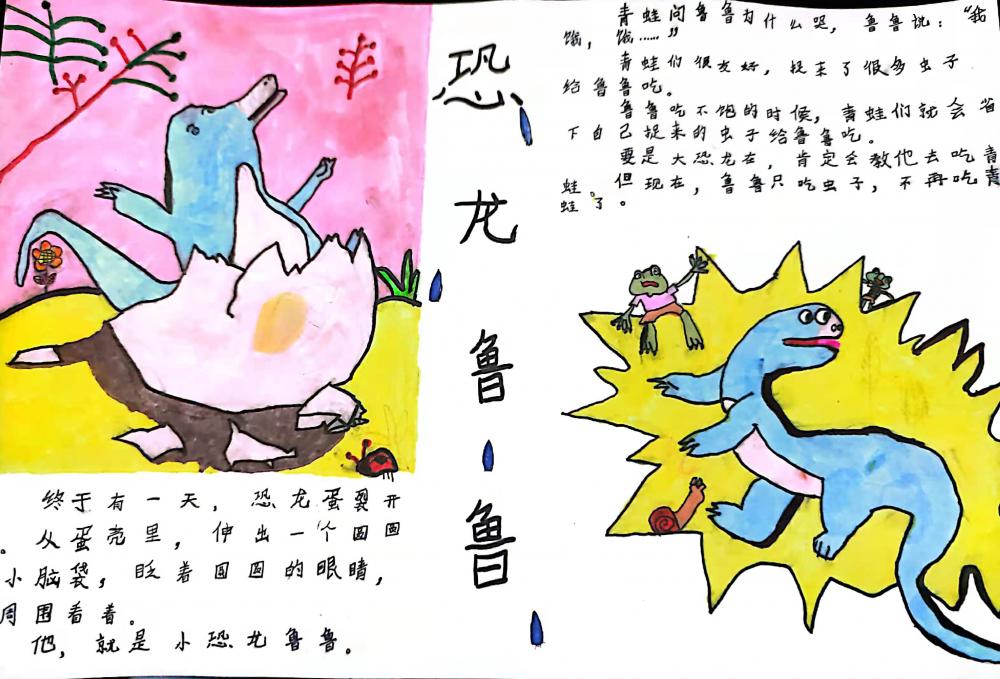 恐龙鲁鲁
终于有一天，恐龙蛋裂开
。从蛋壳里，伸出一个圆圆
小脑袋，眨着圆圆的眼睛，
周围看着。
他，就是小恐龙鲁鲁。
青蛙问鲁鲁为什么哭，鲁鲁说：“我
饿，饿……”
青蛙们很友好，捉来了很多虫子
给鲁鲁吃。
鲁鲁吃不饱的时候，青蛙们就会省
下自己捉来的虫子给鲁鲁吃。
要是大恐龙在，肯定会教他去吃青
蛙。但现在，鲁鲁只吃虫子，不再吃青
蛙了。